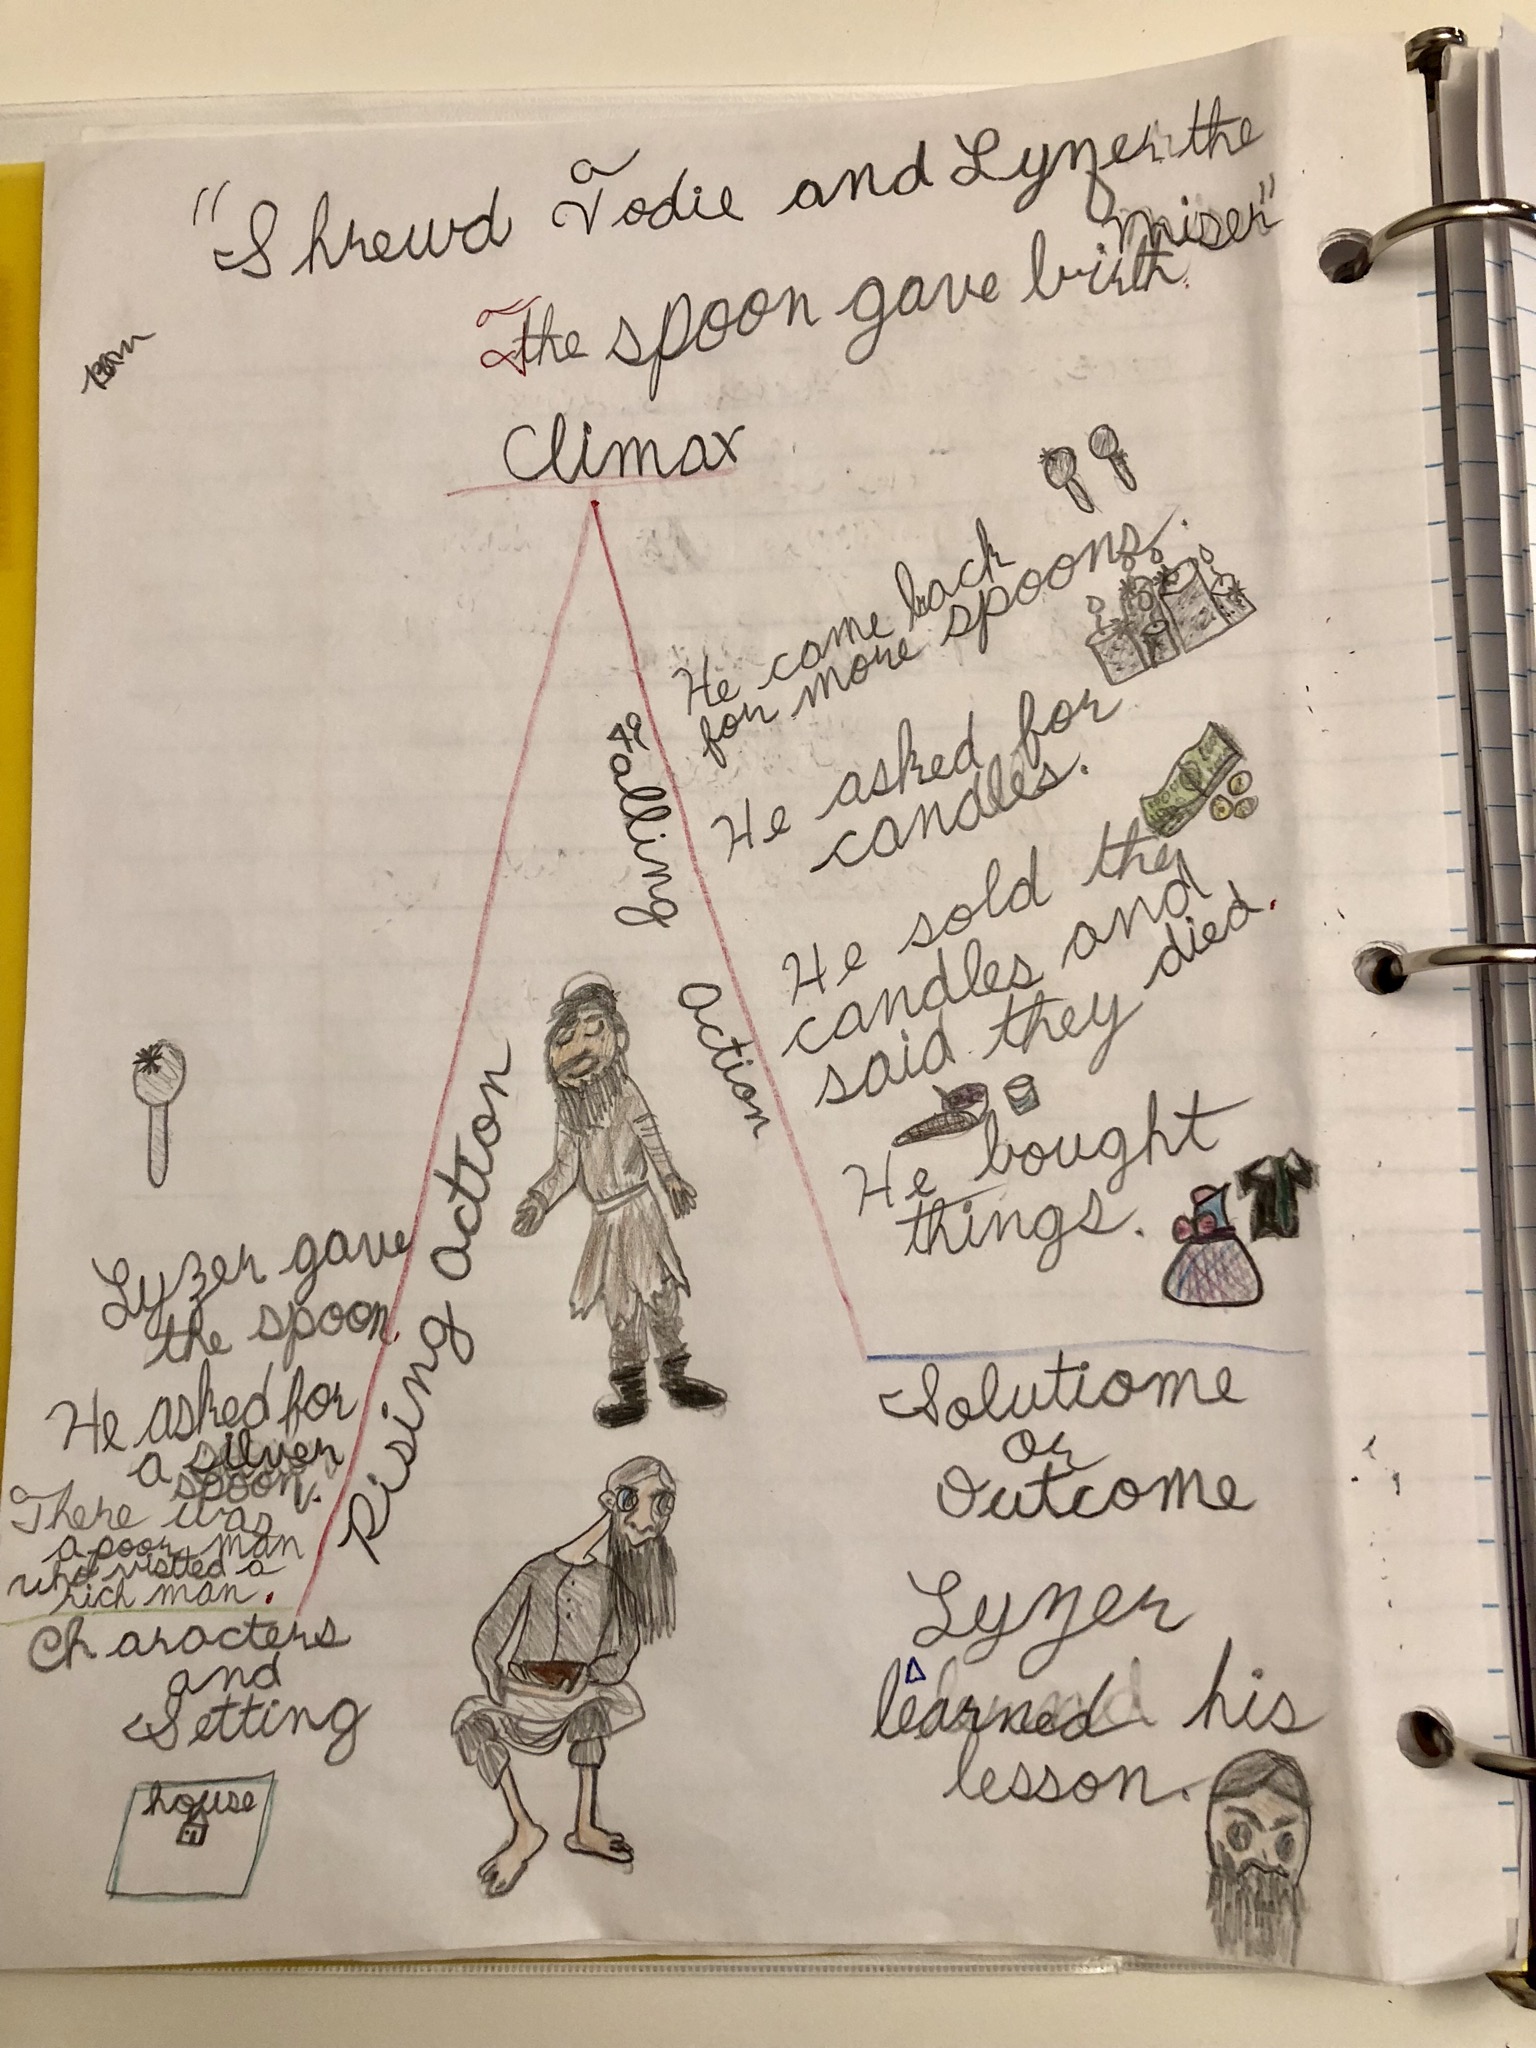 "Shrewd Todie and Lyzer the
miser"
The spoon gave birth.
Climax
He came back
for more spoons.
He asked for
candles.
He sold the
candles and
said they died.
He bought
things.
Falling
action
Rising action
Lyzer gave
the spoon.
He asked for
a silver
spoon.
There was
a poor man
who visited a
rich man.
Characters
and
Setting
house
Solutiome
or
Outcome
Lyzer
learned his
lesson.